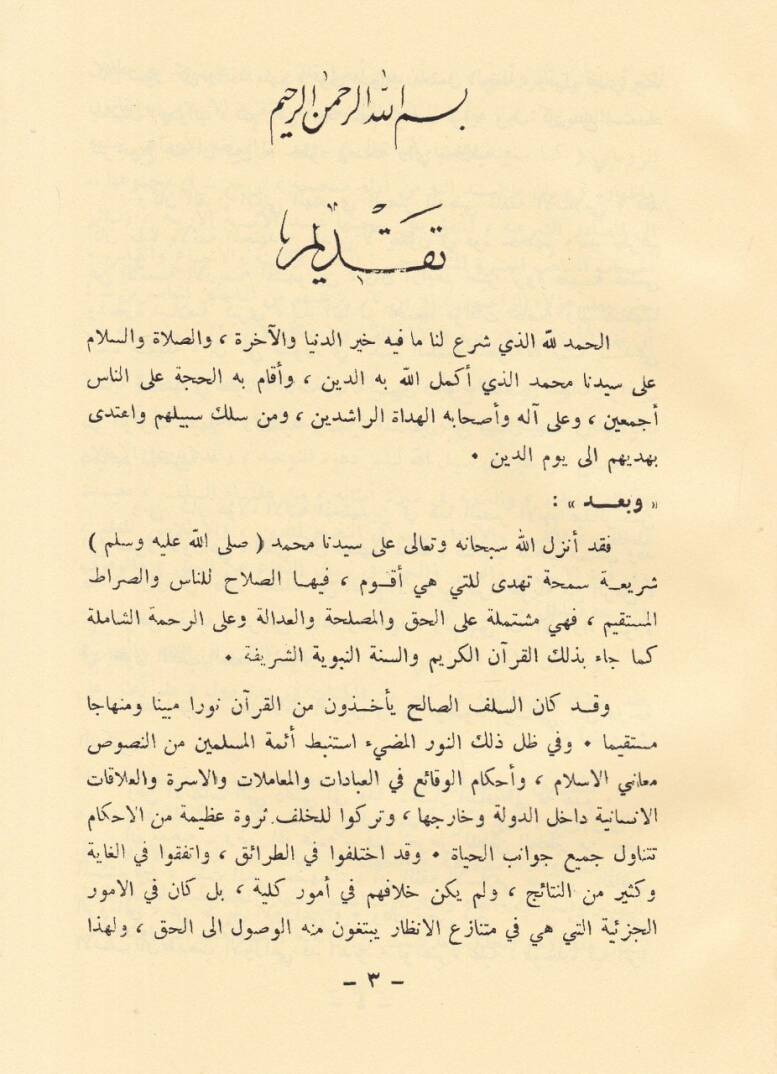 بسم الله الرحمن الرحيم
تقديم
الحمد لله الذي شرع لنا ما فيه خير الدنيا والآخرة ، والصلاة والسلام
على سيدنا محمد الذي أكمل الله به الدين ، وأقام به الحجة على الناس
أجمعين ، وعلى آله وأصحابه الهداة الراشدين ، ومن سلك سبيلهم واعتدى
بهديهم الى يوم الدين ٠
« وبعـــد » :
فقد أنزل الله سبحانه وتعالى على سيدنا محمد ( صلى الله عليه وسلم )
شريعــة سمحة تهدى للتي هي أقــوم ، فيهـا الصلاح للناس والصراط
المستقيم ، فهي مشتملة على الحق والمصلحة والعدالة وعلى الرحمة الشاملة
كما جاء بذلك القرآن الكريم والسنة النبوية الشريفة ٠
وقـد كان السلف الصالح يأخـذون من القرآن نورا مبينا ومنهاجا
مستقيما ٠ وفي ظل ذلك النور المضيء استنبط أئمة المسلمين من النصوص
معاني الاسلام ، وأحكام الوقائع في العبادات والمعاملات والاسرة والعلاقات
الانسانية داخل الدولة وخارجها ، وتركوا للخلف ثروة عظيمة من الاحكام
تتناول جميع جوانب الحياة ٠ وقد اختلفوا في الطرائق ، واتفقوا في الغاية
وكثير من النتائج ، ولم يكن خلافهم في أمور كلية ، بل كان في الامور
الجزئية التي هي في متنازع الانظار يبتغون منه الوصول الى الحق ، ولهذا
– ٣ –